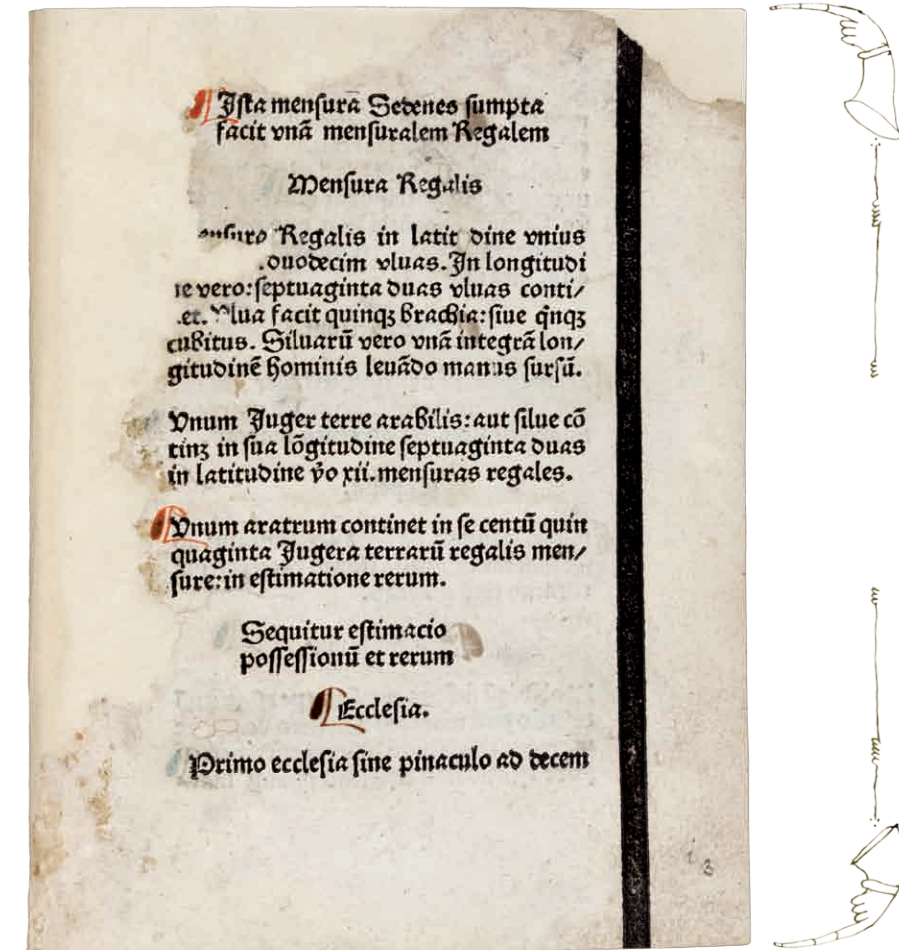 Iſta menſura Sedenes ſumpta
facit vnã menſuralem Regalem
Menſura Regalis
Regalis in latit dine vnius
duodecim vluas. In longitudi
vero: ſeptuaginta duas vluas conti/
Vlua facit quinqꝫ brachia: ſiue q̃nqꝫ
cubitus. Siluarũ vero vnã integrã lon/
gitudinẽ hominis leuãdo manus ſurſũ.
Vnum Juger terre arabilis: aut ſilue cõ
tinꝫ in ſua lõgitudine ſeptuaginta duas
in latitudine ṽo xii. menſuras regales.
Vnum aratrum continet in ſe centũ quin
quaginta Jugera terrarũ regalis men/
ſure: in eſtimatione rerum.
Sequitur eſtimacio
poſſeſſionũ et rerum
Eccleſia.
Primo eccleſia ſine pinaculo ad decem
3